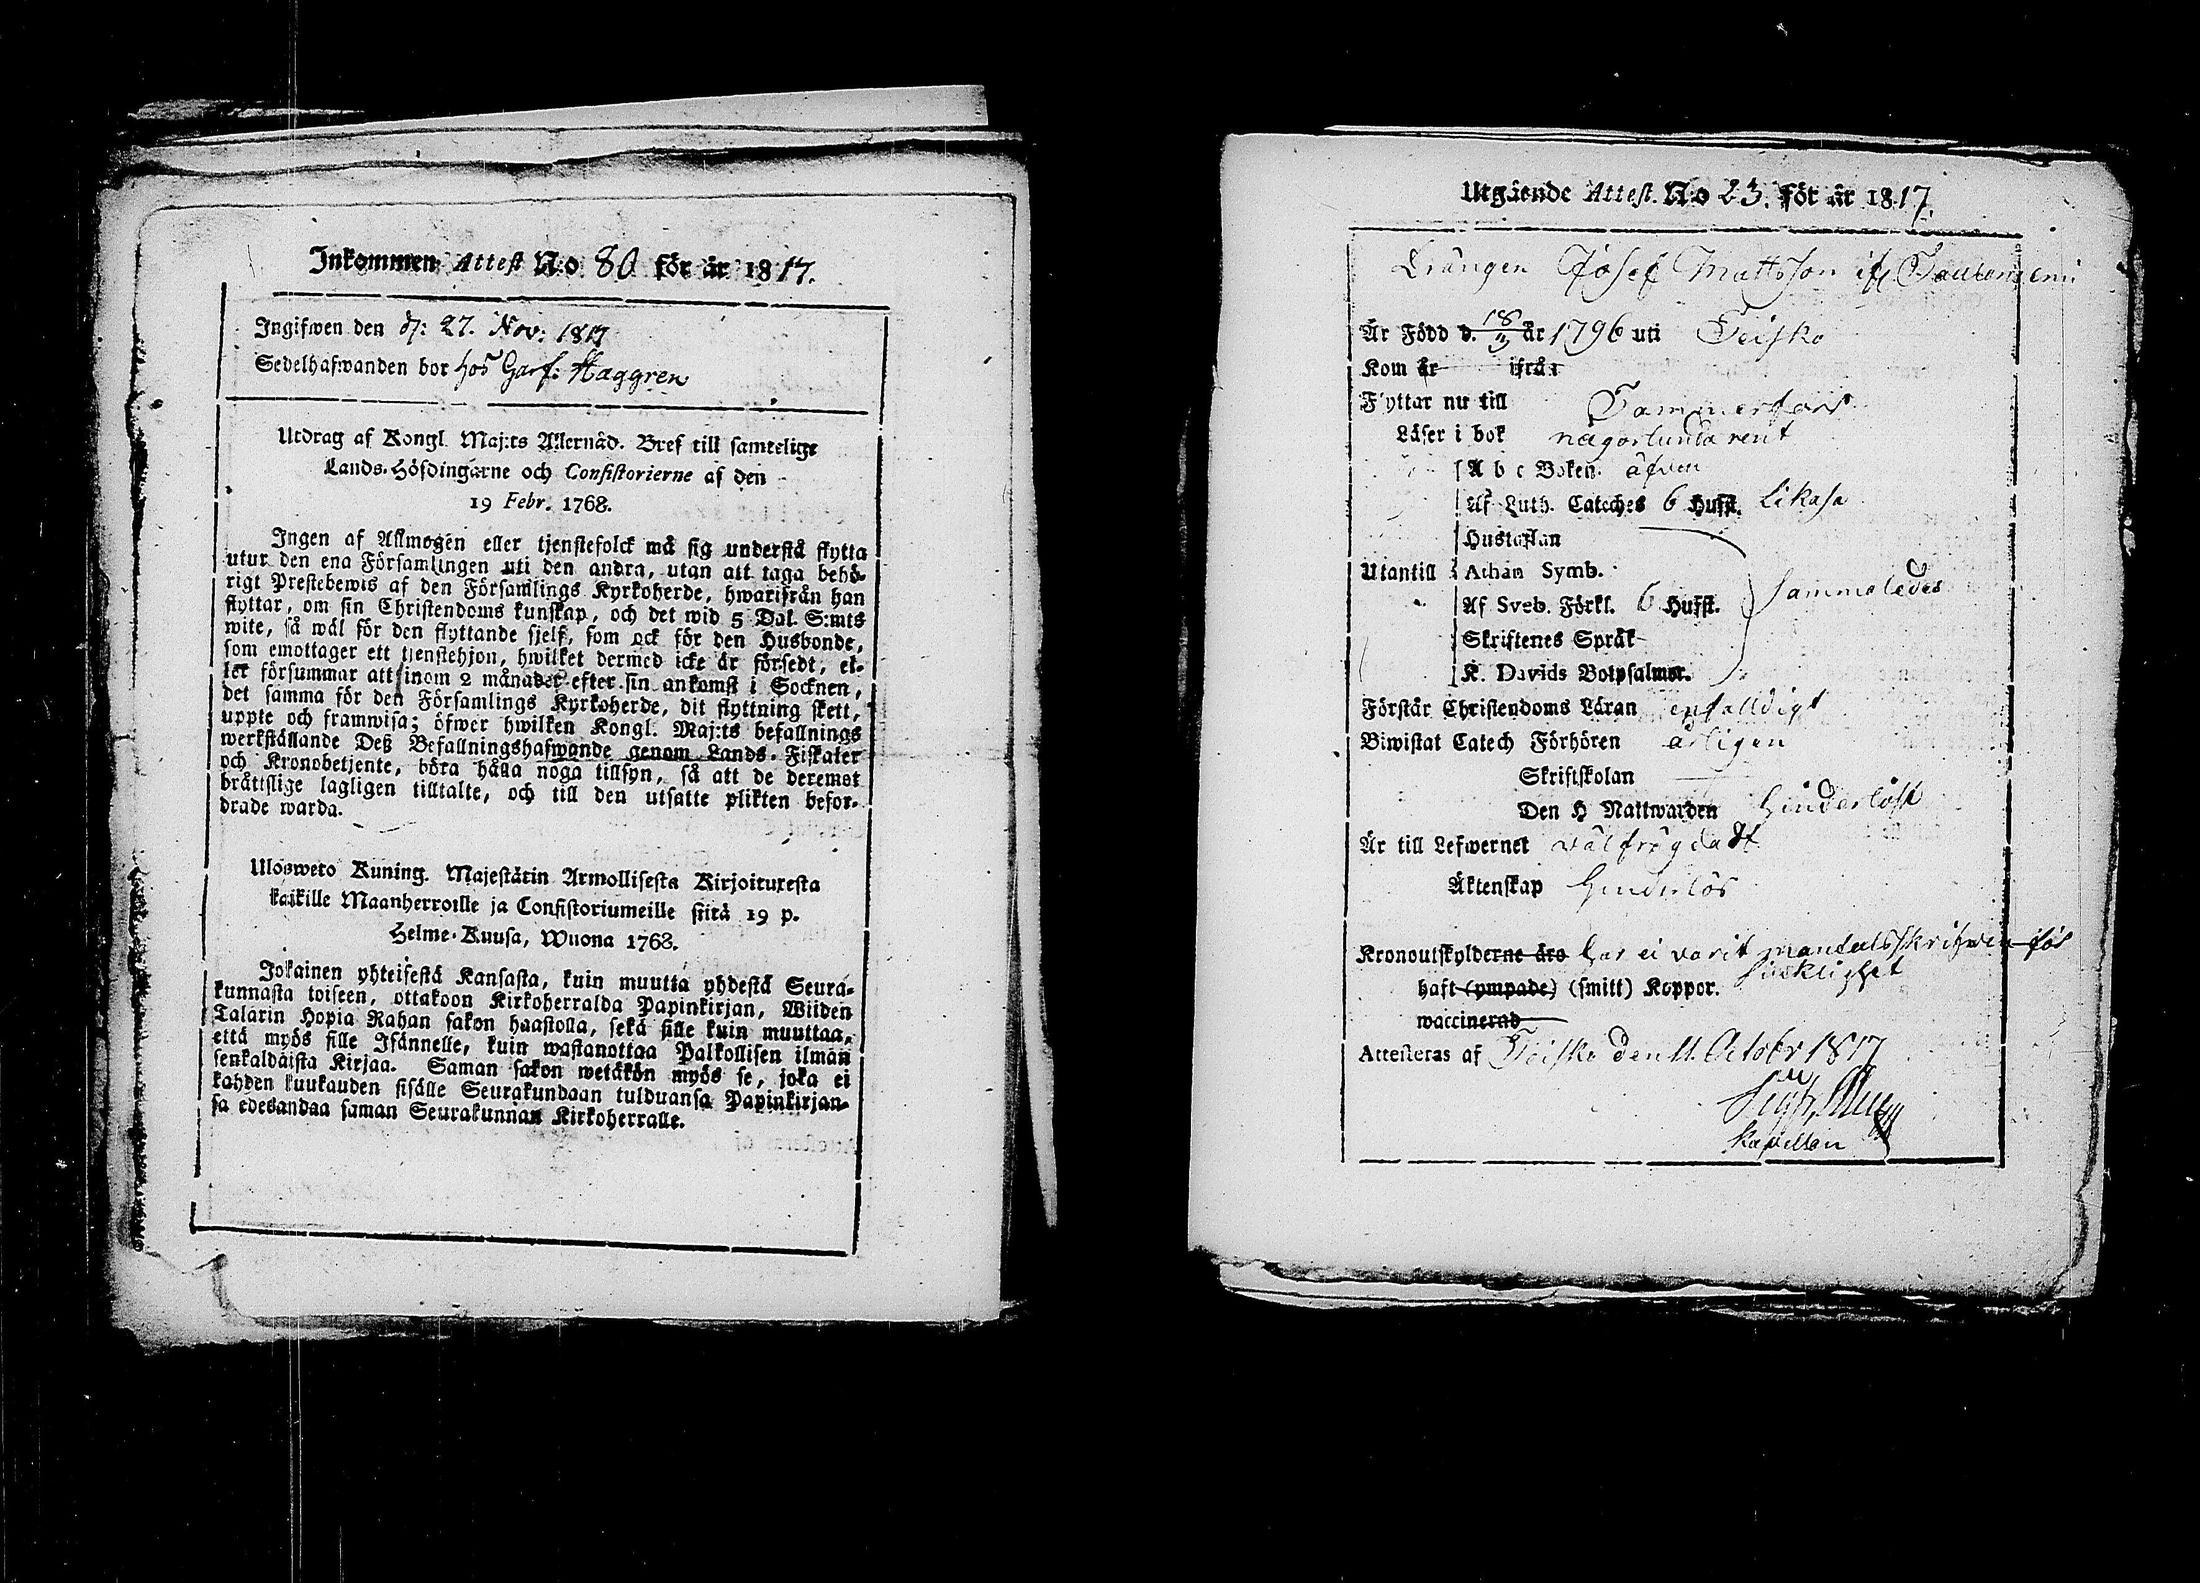 Inkommen Attest No 80 för år 1817.
Ingifwen den d: 27. Nov: 1817
Sedelhafwanden bor hos Garf: Haggren
Utdrag af Kongl. Maj:ts Allernåd. Bref till samtelige
Lands-Höfdingarne och Consistorierne af den
19 Febr. 1768.
Ingen af Allmogen eller tjenstefolck må sig understå flytta
utur den ena Församlingen uti den andra, utan att taga behö-
rigt Prestebewis af den Församlings Kyrkoherde, hwarifrån han
flyttar, om sin Christendoms kunskap, och det wid 5 Dal. S:mts
wite, så wäl för den flyttande sjelf, som ock för den Husbonde,
som emottager ett tjenstehjon, hwilket dermed icke är försedt, el-
ler försummar att inom 2 månader efter sin ankomst i Socknen,
det samma för den Församlings Kyrkoherde, dit flyttning skett,
uppte och framwisa; öfwer hwilken Kongl. Maj:ts befallnings
werkställande Deß Befallningshafwande genom Lands-Fiskaler
och Kronobetjente, böra hålla noga tillsyn, så att de deremot
bråttslige lagligen tilltalte, och till den utsatte plikten befor-
drade warda.
Ulosweto Kuning. Majestätin Armollisesta Kirjoituxesta
kaikille Maanherroille ja Consistoriumeille siitä 19 p.
Helme-Kuusa, Wuona 1768.
Jokainen yhteisestä Kansasta, kuin muutta yhdestä Seura-
kunnasta toiseen, ottakoon Kirkoherralda Papinkirjan, Wiiden
Talarin Hopia Rahan sakon haastolla, sekä sille kuin muuttaa,
että myös sille Isännelle, kuin wastanottaa Palkollisen ilman
senkaldaista Kirjaa. Saman sakon wetäkön myös se, joka ei
kahden kuukauden sisälle Seurakundaan tulduansa Papinkirjan-
sa edesandaa saman Seurakunnan Kirkoherralle.
Utgående Attest. No 23. för år 1817.
Drängen Josef Mattsson ifr
Är Född d. 18 år 1796 uti Teisko
Kom år ifrån
Flyttar nu till Tammerfors
Läser i bok någorlunda rent
A b c Boken. äfven
Af Luth. Cateches 6 Hufst. Likaså
Hustaflan
Utantill Athan Symb.
Af Sveb. Förkl. 6 Hufst. Sammaledes
Skriftenes Språk
K. Davids Botpsalmer.
Förstår Christendoms Läran enfalldigt
Biwistat Catech Förhören årligen
Skriftskolan
Den H Nattwarden hinderlöst
Är till Lefwernet välfrägdadt
Äktenskap hinderlös
Kronoutskylderne äro har ei varit mantalsskrifven för
siuklighet
haft (ympade) (smitt) Koppor.
waccinerad
Attesteras af Teisko den 11. October 1817
Kapellan